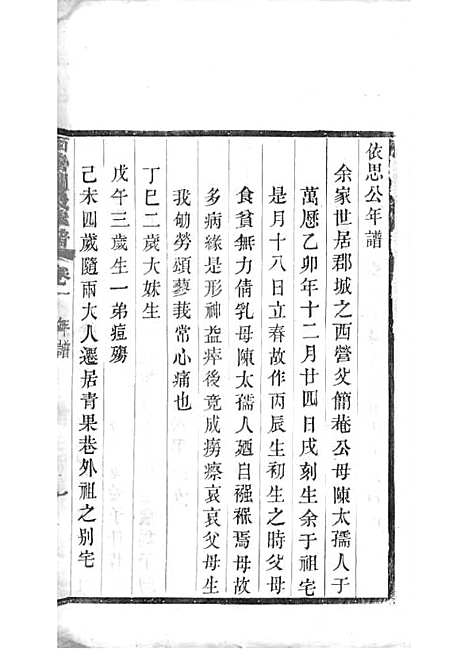 依思公年譜
余家世居郡城之西營父簡菴公母陳太孺人于
萬厯乙卯年十二月廿四日戌刻生余于祖宅
是月十八日立春故作丙辰生初生之時父母
食貧無力倩乳母陳太孺人廼自襁褓焉母故
多病緣是形神益瘁後竟成癆瘵哀哀父母生
我劬勞頌蓼莪常心痛也
丁巳二歲大妹生
戊午三歲生一弟痘殤
己未四歲隨兩大人遷居青果巷外祖之別宅
卷一 年譜